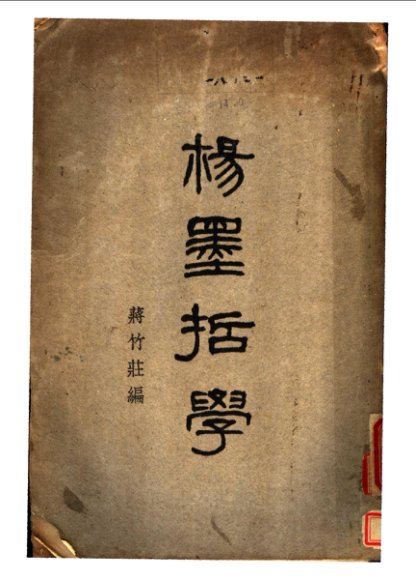 楊墨哲學
蔣竹莊編